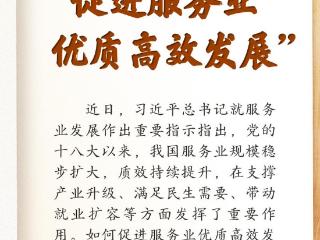 促进服务业
优质高效发展”
近日，习近平总书记就服务
业发展作出重要指示指出，党的
十八大以来，我国服务业规模稳
步扩大，质效持续提升，在支撑
产业升级、满足民生需要、带动
就业扩容等方面发挥了重要作
用。如何促进服务业优质高效发